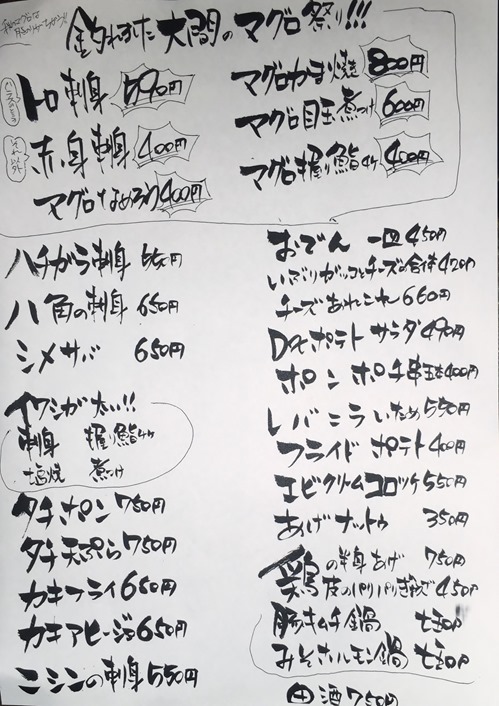 釣れました大間のマグロ祭り!!!
トロ刺身 590円
赤身刺身 400円
マグロなめろう 400円
マグロかま焼 800円
マグロ目玉煮つけ 600円
マグロ握り鮨4ケ 400円
ハチガラ刺身 550円
八角の刺身 650円
シメサバ 650円
イワシが太い!!
刺身 握り鮨4ケ
塩焼 煮つけ
タチポン 750円
タチ天ぷら 750円
カキフライ 650円
カキアヒージョ 650円
ニシンの刺身 550円
おでん 一皿 450円
いぶりガッコとチーズの合体 420円
チーズあれこれ 660円
Daポテトサラダ 490円
ボンボチ串五本 400円
レバニラいため 550円
フライドポテト 400円
エビクリームコロッケ 550円
あげナットウ 350円
鶏の半身あげ 750円
皮のパリパリぎょーざ 450円
豚キムチ鍋
みそホルモン鍋
酒 750円